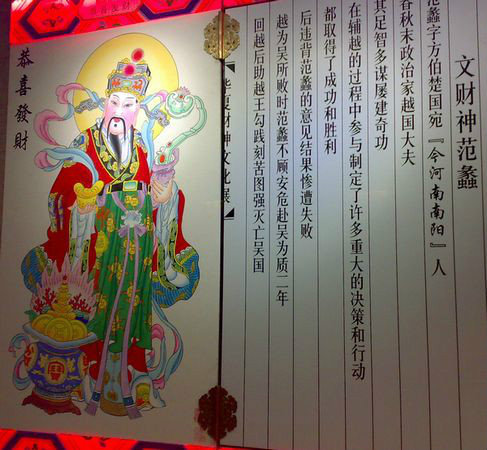 文财神范蠡
范蠡字方伯楚国宛『今河南南阳』人
春秋末政治家越国大夫
其足智多谋屡建奇功
在辅越的过程中参与制定了许多重大的决策和行动
都取得了成功和胜利
后违背范蠡的意见结果惨遭失败
越为吴所败时范蠡不顾安危赴吴为质二年
回越后助越王勾践刻苦图强灭亡吴国
【华夏财神文化展】
恭喜發財